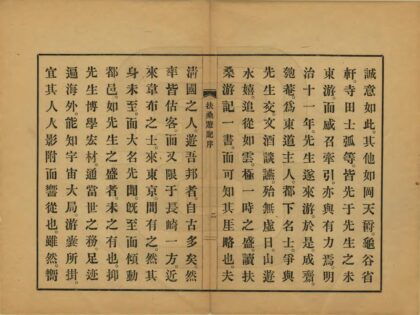 誠意如此。其他如岡天爵。龜谷省
軒。寺田士弧等。皆先于先生之未
東游而威召牽引。亦與有力焉。明
治十一年。先生遂來游。於是成齋
匏菴。爲東道主人。都下名士。爭與
先生交。文酒談讌。殆無虛日。山遊
水嬉。追從如雲。極一時之盛。讀扶
桑游記一書。而可知其厓略也。夫
扶桑遊記序
二
清國之人遊吾邦者。自古多矣。然
率皆估客。而又限于長崎一方。近
來韋布之士。來東京。間有之。然其
身未至而大名先聞。既至而傾動
都邑。如先生之盛者。未之有也。抑
先生博學宏材。通當世之務。足迹
遍海外。能知宇宙大局。游囊所挂。
宜其人人影附而響從也。雖然嚮